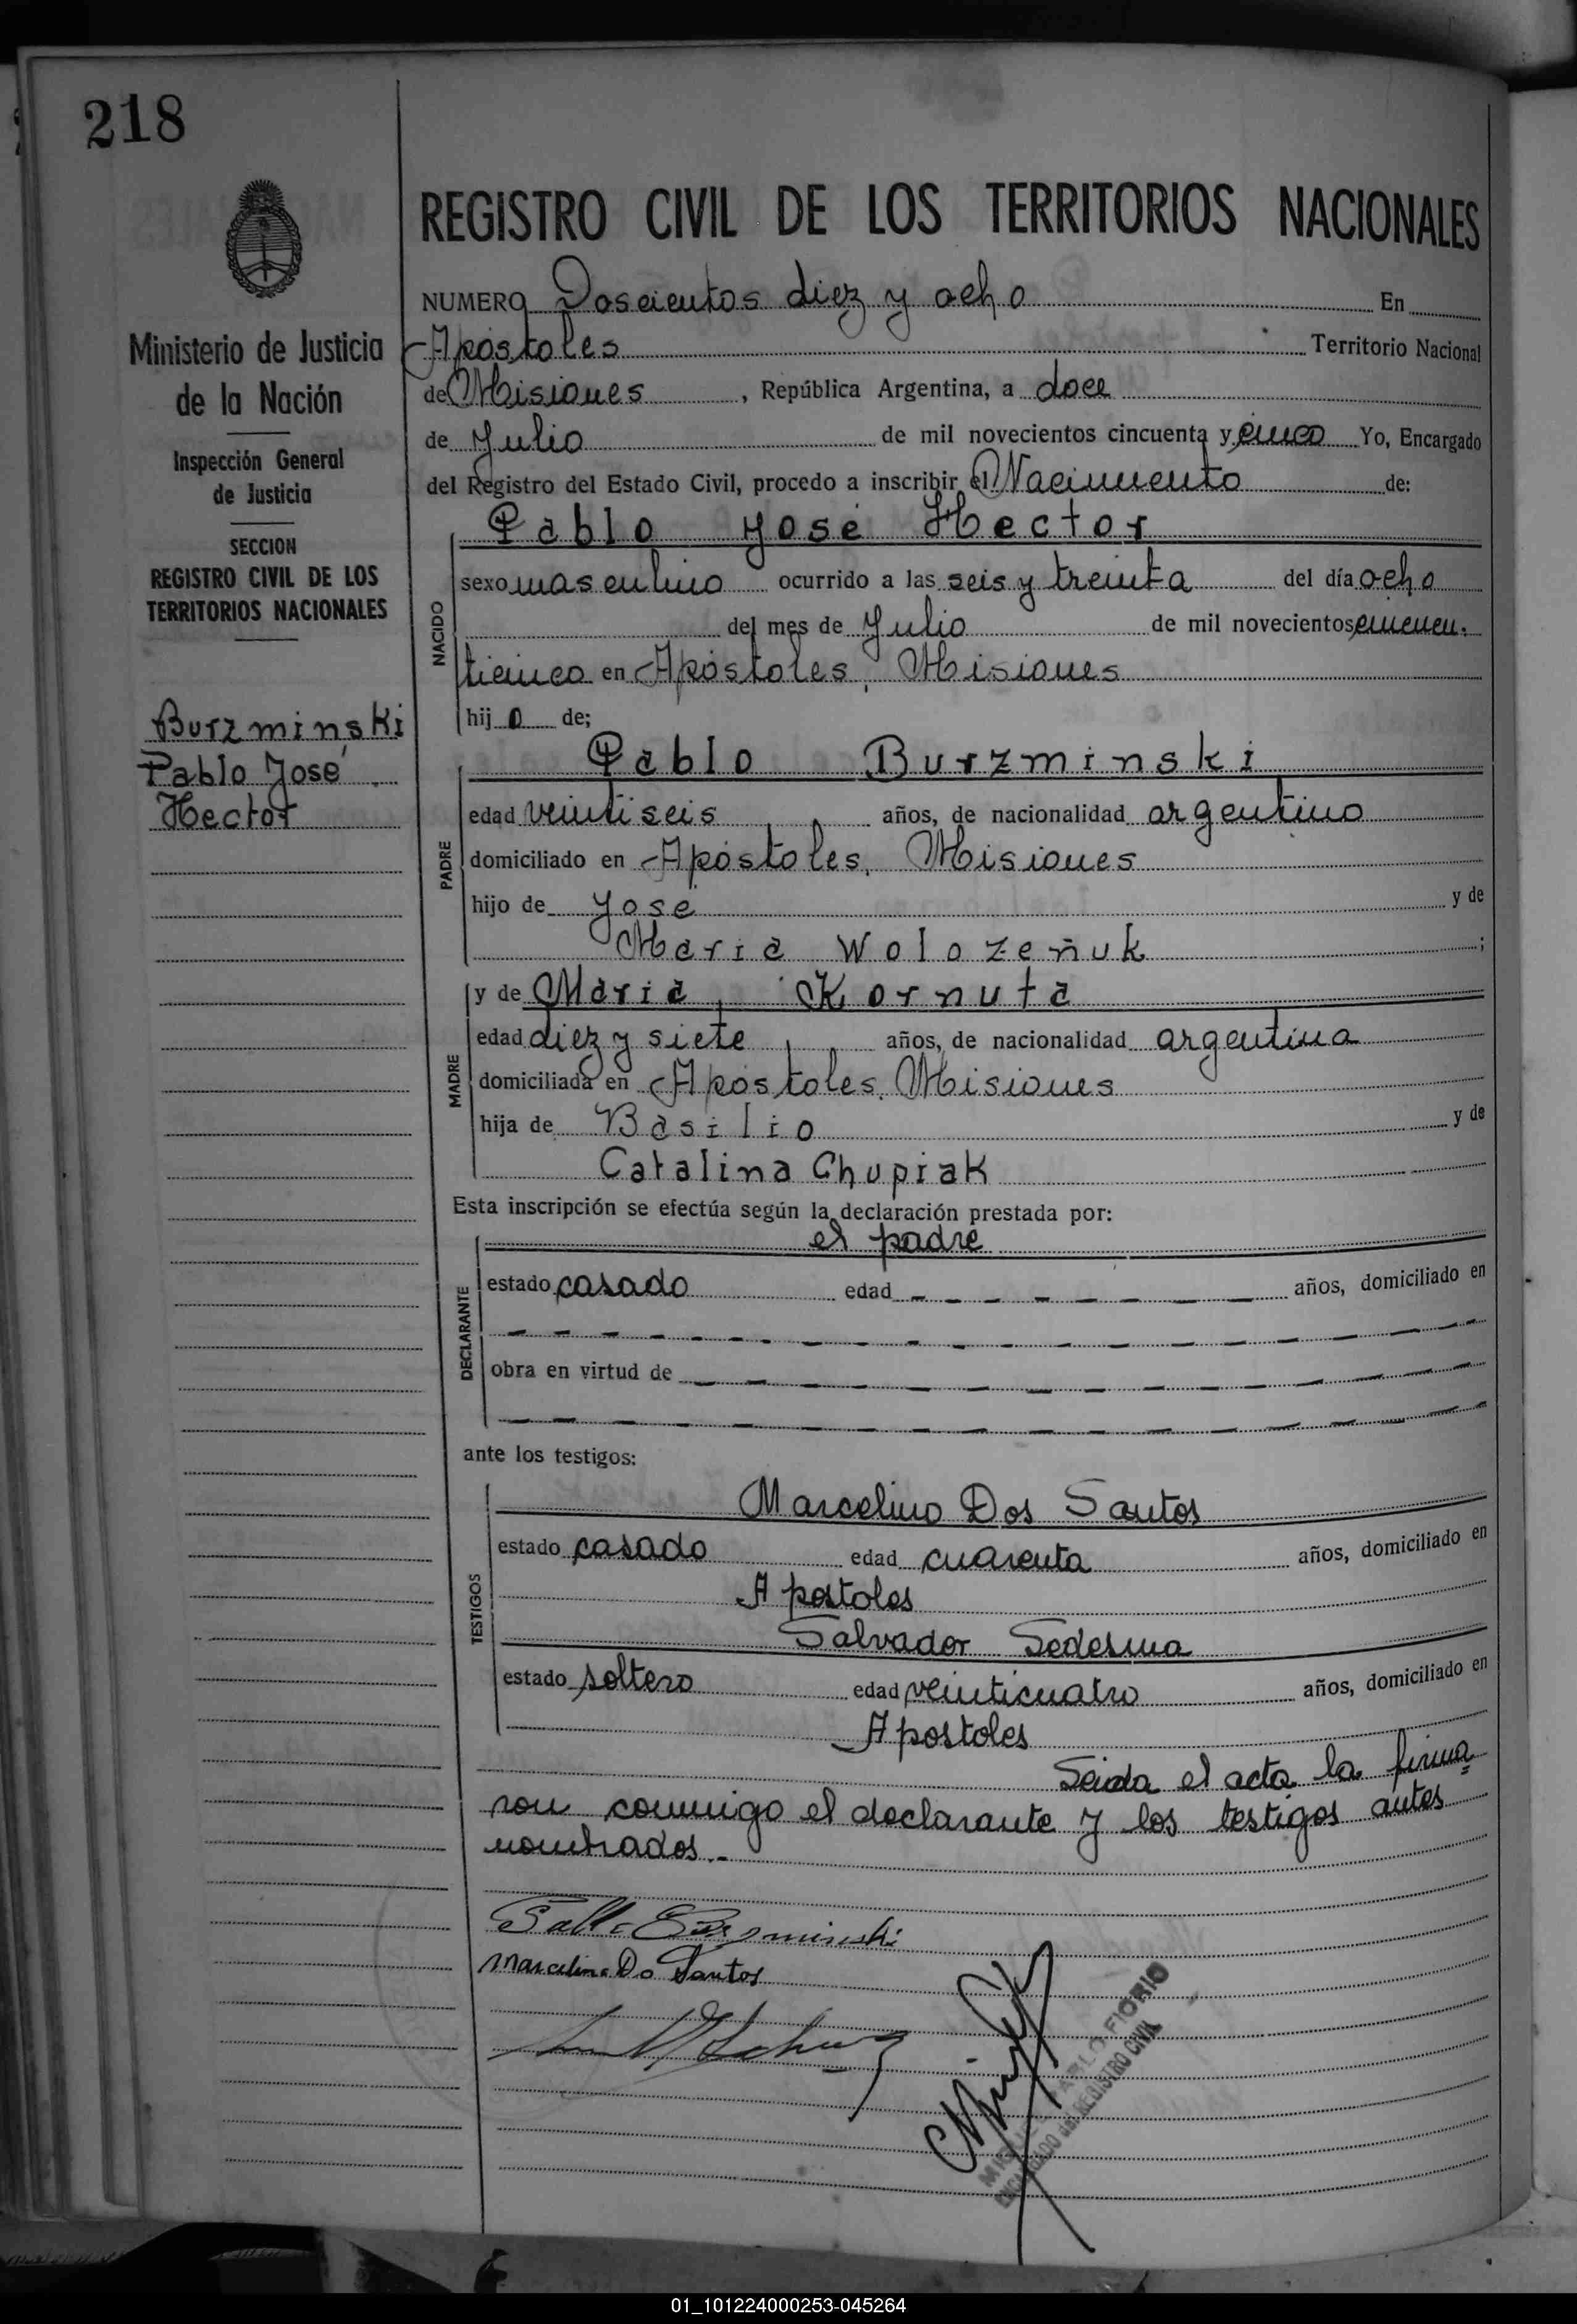 218
REGISTRO CIVIL DE LOS TERRITORIOS NACIONALES
Ministerio de Justicia
de la Nación
Inspección General
de Justicia
SECCION
REGISTRO CIVIL DE LOS
TERRITORIOS NACIONALES
Burzminski
Pablo José
Hector
NUMERO Doscientos diez y ocho En
Apóstoles Territorio Nacional
de Misiones, República Argentina, a doce
de Julio de mil novecientos cincuenta y cinco Yo, Encargado
del Registro del Estado Civil, procedo a inscribir el Nacimiento de:
NACIDO
Pablo José Hector
sexo masculino ocurrido a las seis y treinta del día ocho
del mes de Julio de mil novecientos cincuen-
ticinco en Apóstoles, Misiones
hijo de;
PADRE
Pablo Burzminski
edad veintiseis años, de nacionalidad argentino
domiciliado en Apóstoles, Misiones
hijo de José y de
María Wolozeñuk;
MADRE
y de María Kornuta
edad diez y siete años, de nacionalidad argentina
domiciliada en Apóstoles, Misiones
hija de Basilio y de
Catalina Chupiak
Esta inscripción se efectúa según la declaración prestada por:
DECLARANTE
el padre
estado casado edad - - - - - - - años, domiciliado en
obra en virtud de
ante los testigos:
TESTIGOS
Marcelino Dos Santos
estado casado edad cuarenta años, domiciliado en
Apostoles
Salvador Ledesma
estado soltero edad veinticuatro años, domiciliado en
Apostoles
Leida el acta la firma
ron conmigo el declarante y los testigos antes
nombrados.-
Pablo Burzminski
Marcelino Do Santos
PABLO FIORIO
ENCARGADO del REGISTRO CIVIL
01_101224000253-045264